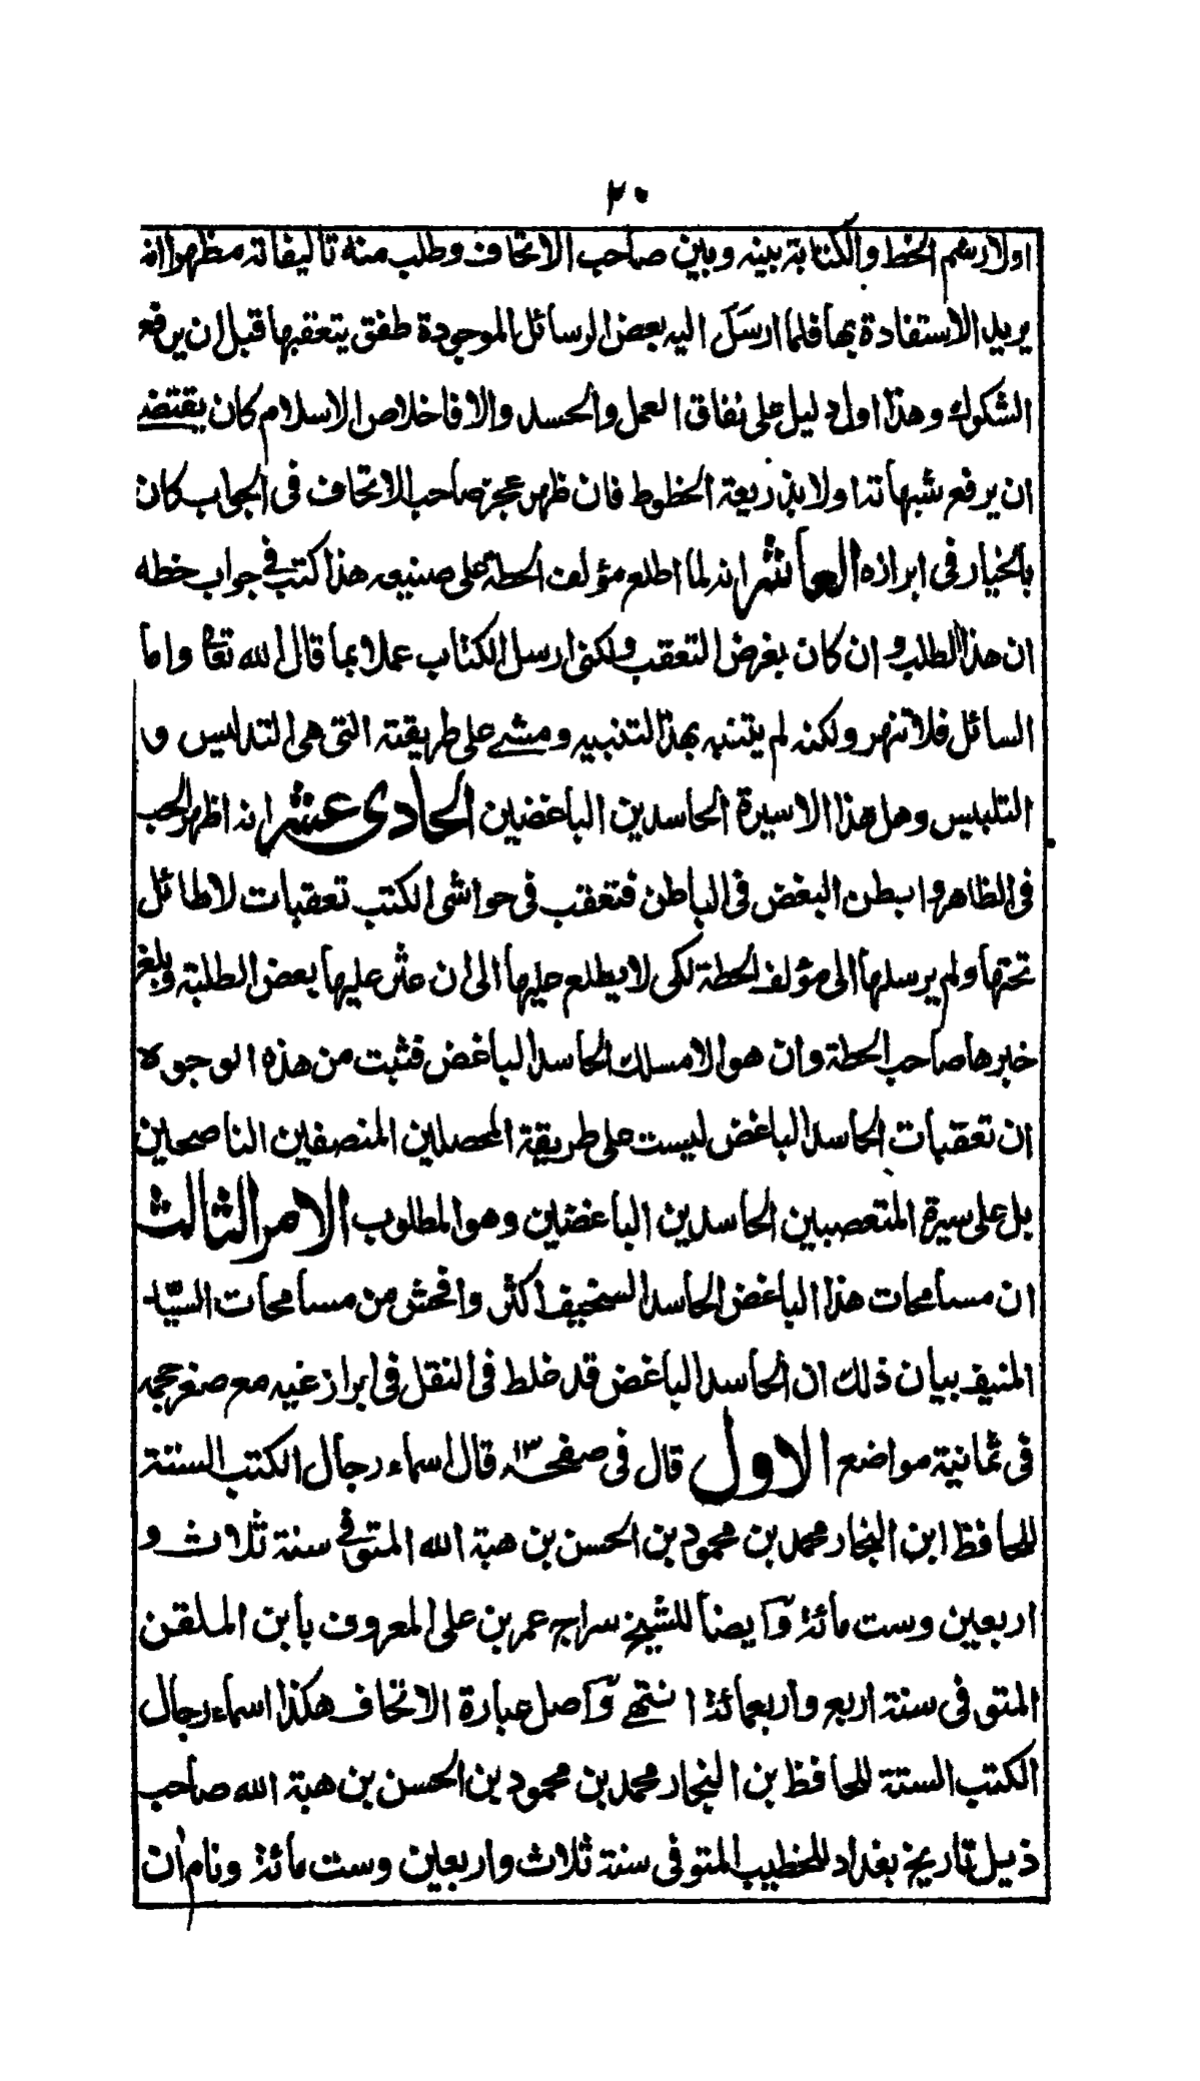 ٢٠
اولا رسم الخط والكتابة بينه وبين صاحب الاتحاف وطلب منه تاليفاته مظهرا انه
يريد الاستفادة بها فلما ارسل اليه بعض الرسائل الموجودة طفق يتعقبها قبل ان يرفع
الشكوك وهذا اول دليل على نفاق العمل والحسد والا فاخلاص الاسلام كان يقتضے
ان يرفع شبهاته اولا بذريعة الخطوط فان ظهر عجز صاحب الاتحاف فى الجواب كان
بالخيار فى ابرازه العاشر انه لما اطلع مؤلف الحطة على صنيعه هذا كتب فى جواب خطه
ان هذا الطلب و ان كان بغرض التعقب ولكنى ارسل الكتاب عملا بما قال الله تعا واما
السائل فلا تنهر ولكنه لم يتنبه بهذا التنبيه ومشے على طريقته التى هى التدليس و
التلبيس وهل هذا الا سيرة الحاسدين الباغضين الحادى عشر انه اظهر الحب
فى الظاهر وابطن البغض فى الباطن فتعقب فى حواشى الكتب تعقبات لا طائل
تحتها ولم يرسلها الى مؤلف الحطة لكى لا يطلع عليها الى ان عثر عليها بعض الطلبة وبلغ
خبرها صاحب الحطة وان هو الا مسلك الحاسد الباغض فثبت من هذه الوجوه
ان تعقبات الحاسد الباغض ليست على طريقة المحصلين المنصفين الناصحين
بل على سيرة المتعصبين الحاسدين الباغضين وهو المطلوب الامر الثالث
ان مسامحات هذا الباغض الحاسد السخيف اكثر وافحش من مسامحات السيّد
المنيف بيان ذلك ان الحاسد الباغض قد غلط فى النقل فى ابراز غيه مع صغر حجمه
فى ثمانية مواضع الاول قال فى صفحه ١٣ قال اسماء رجال الكتب الستة
للحافظ ابن النجار محمد بن محمود بن الحسن بن هبة الله المتوفى سنة ثلاث و
اربعين وست مائة وايضا للشيخ سراج عمر بن على المعروف بابن الملقن
المتوفى سنة اربع واربعمائة انتهے واصل عبارة الاتحاف هكذا اسماء رجال
الكتب الستة للحافظ بن النجار محمد بن محمود بن الحسن بن هبة الله صاحب
ذيل تاريخ بغداد للخطيب المتوفى سنة ثلاث واربعين وست مائة ونام ان